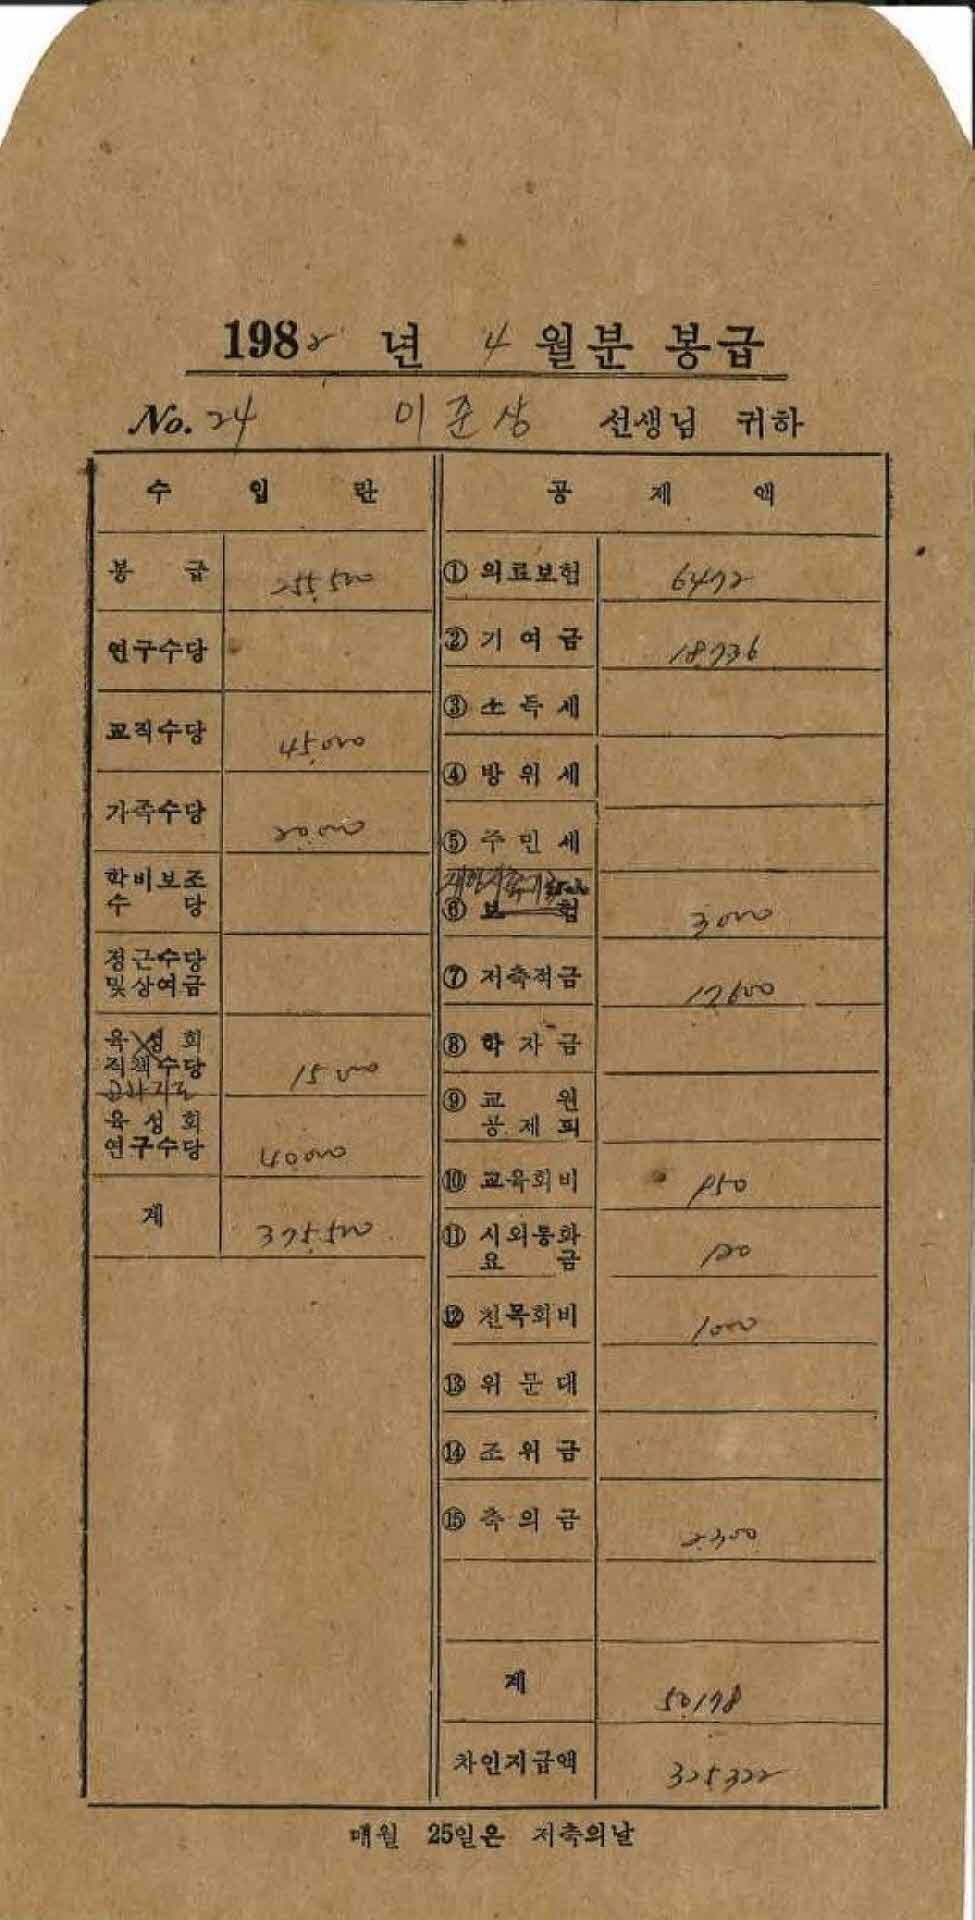 1982 년 4 월분 봉급
No. 24 이준상 선생님 귀하
수 입 란
봉 급 255,500
연구수당
교직수당 45,000
가족수당 20,000
학비보조
수 당
정근수당
및상여금
육성회
직책수당 15,000
육성회
연구수당 40,000
계 375,500
공 제 액
① 의료보험 6472
② 기여금 18,736
③ 소득세
④ 방위세
⑤ 주민세
⑥ 보 험 3,000
⑦ 저축적금 17,600
⑧ 학자금
⑨ 교 원
공제회
⑩ 교육회비 950
⑪ 시외통화
요 금 120
⑫ 친목회비 1000
⑬ 위문대
⑭ 조위금
⑮ 축의금 2,300
계 50,178
차인지급액 325,322
매월 25일은 저축의날